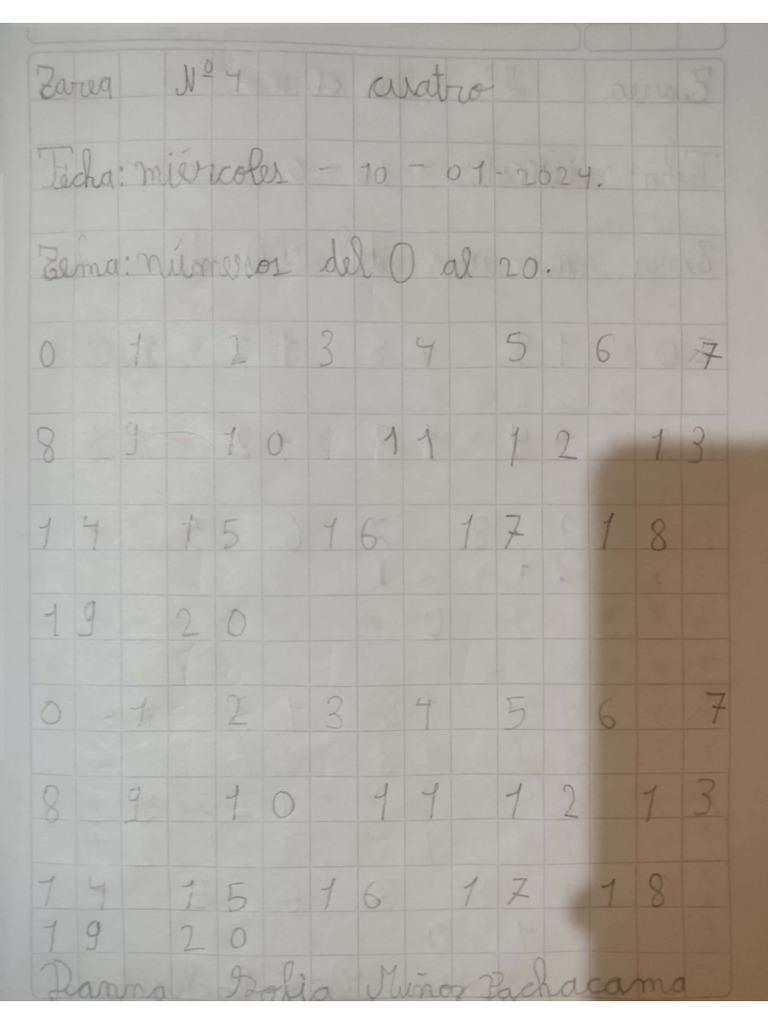 Tarea Nº 4 cuatro
Fecha: miércoles - 10 - 01 - 2024.
Tema: números del 0 al 20.
0 1 2 3 4 5 6 7
8 9 10 11 12 13
14 15 16 17 18
19 20
0 1 2 3 4 5 6 7
8 9 10 11 12 13
14 15 16 17 18
19 20
Danna Sofia Muñoz Pachacama